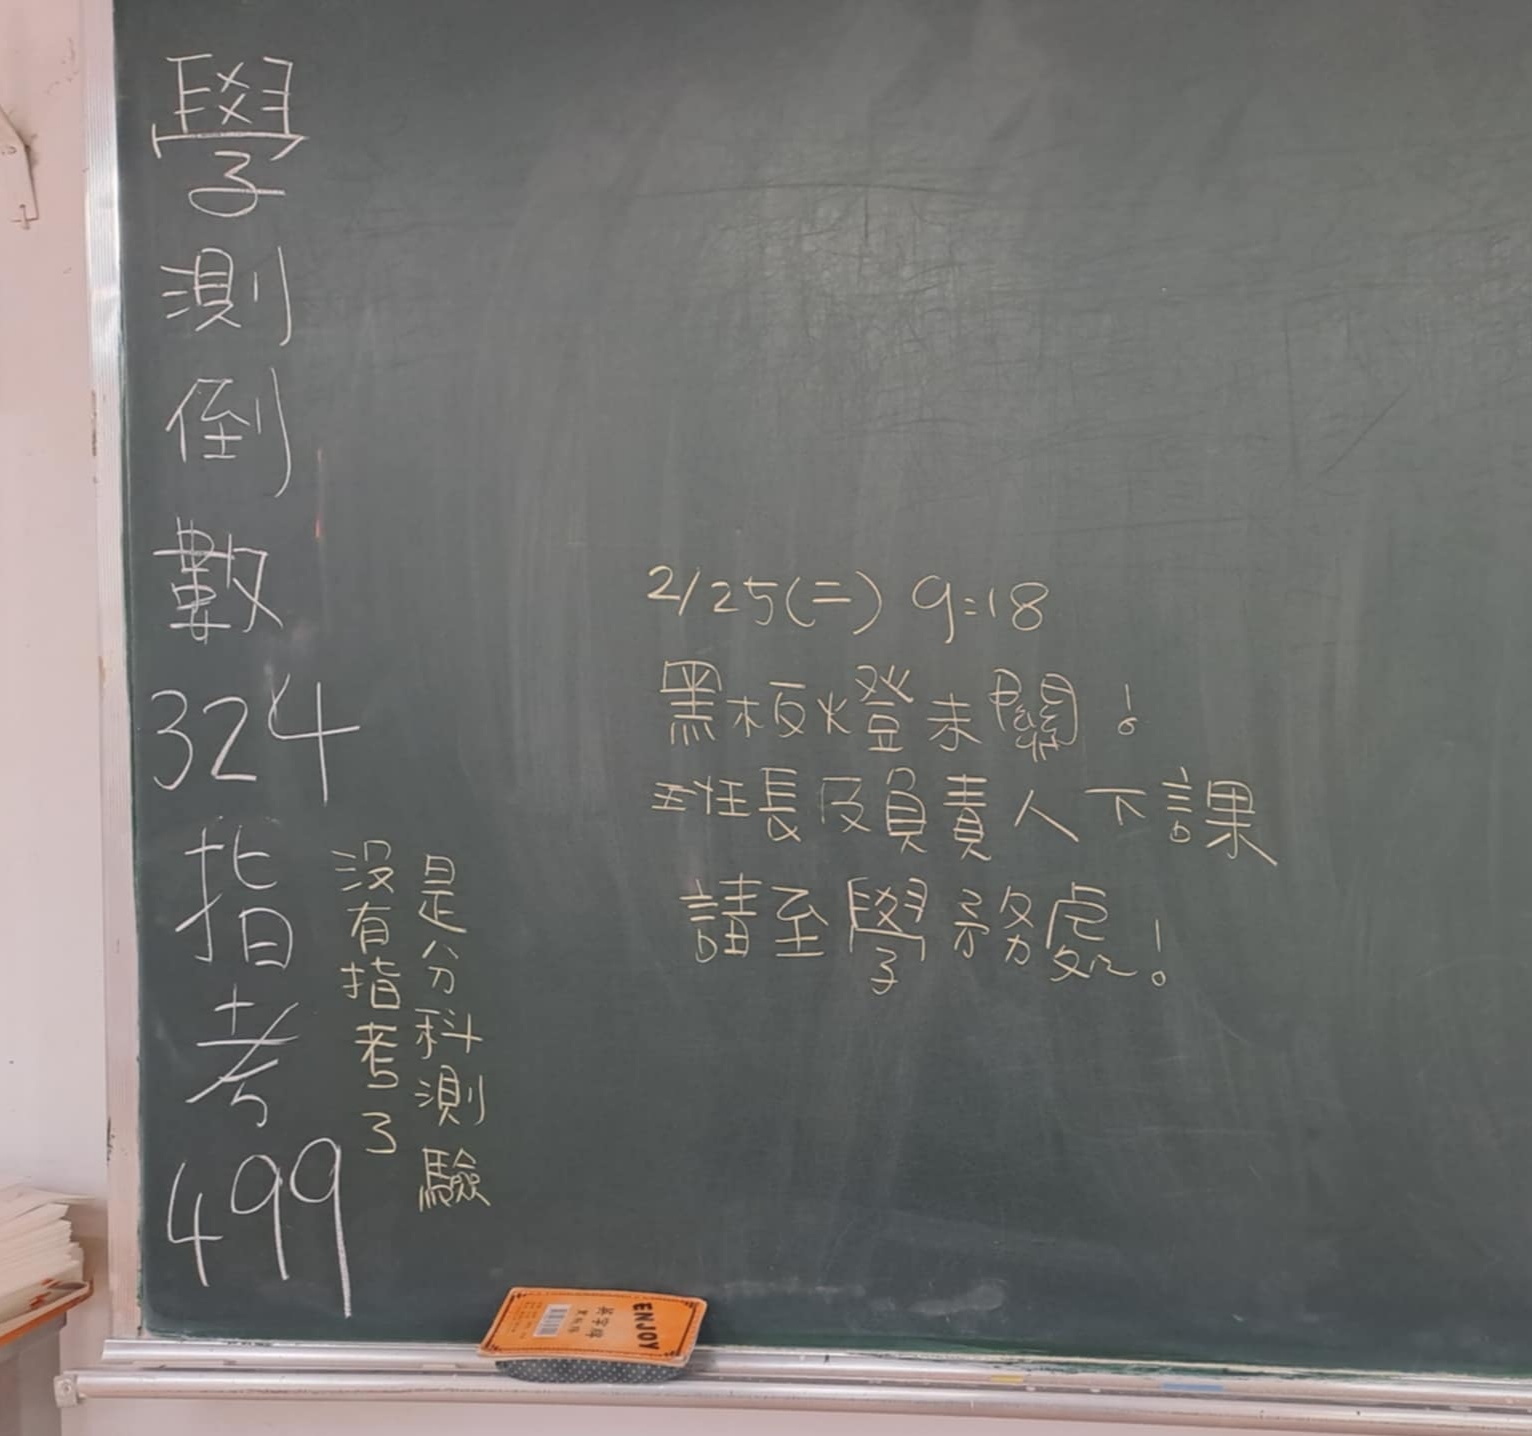 學測倒數
324
指考
499
是分科測驗
沒有指考了
2/25(二) 9:18
黑板燈未關!
班長及負責人下課
請至學務處!
ENJOY